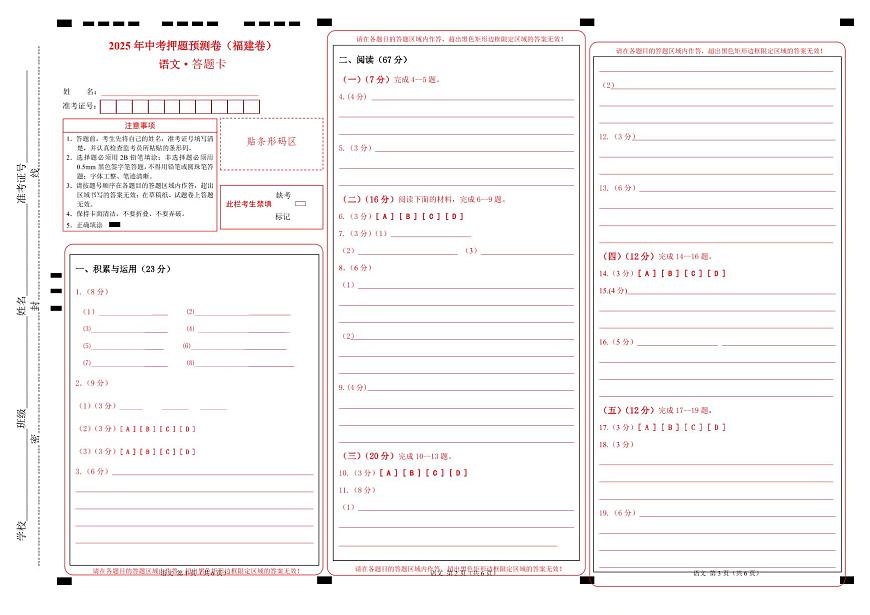 2025 年中考押题预测卷（福建卷）
语文·答题卡
姓 名：
准考证号：
注意事项
1．答题前，考生先将自己的姓名，准考证号填写清
楚，并认真检查监考员所粘贴的条形码。
2．选择题必须用 2B 铅笔填涂；非选择题必须用
0.5mm 黑色签字笔答题，不得用铅笔或圆珠笔答
题；字体工整、笔迹清晰。
3．请按题号顺序在各题目的答题区域内作答，超出
区域书写的答案无效；在草稿纸、试题卷上答题
无效。
4．保持卡面清洁，不要折叠、不要弄破。
5．正确填涂
贴条形码区
缺考
此栏考生禁填
标记
准考证号
姓名
班级
学校
线
封
密
一、积累与运用（23 分）
1.（8 分）
（1） (2)
(3) (4)
(5) (6)
(7) (8)
2.（9 分）
（1）（3 分）
（2）（3 分）[ A ] [ B ] [ C ] [ D ]
（3）（3 分）[ A ] [ B ] [ C ] [ D ]
3.（6 分）
请在各题目的答题区域内作答，超出黑色矩形边框限定区域的答案无效！
语文 第 1 页（共 6 页）
请在各题目的答题区域内作答，超出黑色矩形边框限定区域的答案无效！
二、阅读（67 分）
（一）（7 分）完成 4—5 题。
4.(4 分)
5.（3 分）
（二）（16 分）阅读下面的材料，完成 6—9 题。
6.（3 分）[ A ] [ B ] [ C ] [ D ]
7.（3 分）（1）
（2） （3）
8.（6 分）
（1）
（2）
9.(4 分)
（三）（20 分）完成 10—13 题。
10.（3 分）[ A ] [ B ] [ C ] [ D ]
11.（8 分）
（1）
请在各题目的答题区域内作答，超出黑色矩形边框限定区域的答案无效！
语文 第 2 页（共 6 页）
请在各题目的答题区域内作答，超出黑色矩形边框限定区域的答案无效！
（2）
12.（3 分）
13.（6 分）
（四）（12 分）完成 14—16 题。
14.（3 分）[ A ] [ B ] [ C ] [ D ]
15.(4 分)
16.（5 分）
（五）（12 分）完成 17—19 题。
17.（3 分）[ A ] [ B ] [ C ] [ D ]
18.（3 分）
19.（6 分）
语文 第 3 页（共 6 页）